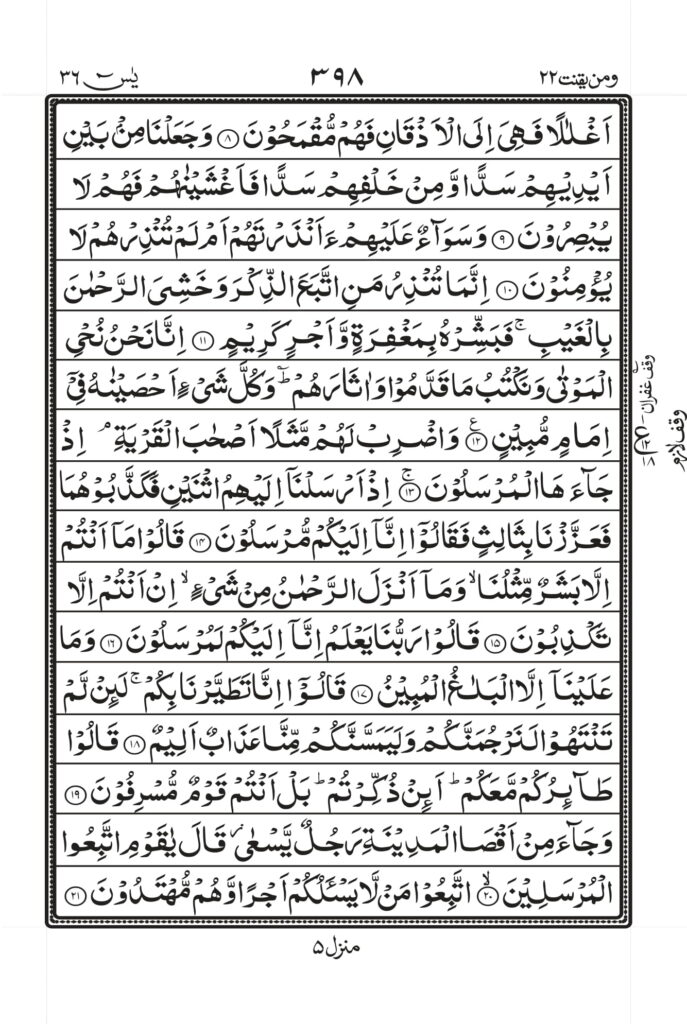 ومن یقنت ۲۲
۳۹۸
یٰسٓ ۳۶
اَغْلٰلًا فَهِیَ اِلَی الْاَذْقَانِ فَهُمْ مُّقْمَحُوْنَ ۸ وَجَعَلْنَا مِنْۢ بَیْنِ
اَیْدِیْهِمْ سَدًّا وَّمِنْ خَلْفِهِمْ سَدًّا فَاَغْشَیْنٰهُمْ فَهُمْ لَا
یُبْصِرُوْنَ ۹ وَسَوَآءٌ عَلَیْهِمْ ءَاَنْذَرْتَهُمْ اَمْ لَمْ تُنْذِرْهُمْ لَا
یُؤْمِنُوْنَ ۱۰ اِنَّمَا تُنْذِرُ مَنِ اتَّبَعَ الذِّكْرَ وَخَشِیَ الرَّحْمٰنَ
بِالْغَیْبِ ۚ فَبَشِّرْهُ بِمَغْفِرَةٍ وَّاَجْرٍ كَرِیْمٍ ۱۱ اِنَّا نَحْنُ نُحْیِ
الْمَوْتٰی وَنَكْتُبُ مَا قَدَّمُوْا وَاٰثَارَهُمْ ؕ وَكُلَّ شَیْءٍ اَحْصَیْنٰهُ فِیْۤ
اِمَامٍ مُّبِیْنٍ ۱۲ ع وَاضْرِبْ لَهُمْ مَّثَلًا اَصْحٰبَ الْقَرْیَةِ ۘ اِذْ
جَآءَهَا الْمُرْسَلُوْنَ ۱۳ ۚ اِذْ اَرْسَلْنَاۤ اِلَیْهِمُ اثْنَیْنِ فَكَذَّبُوْهُمَا
فَعَزَّزْنَا بِثَالِثٍ فَقَالُوْۤا اِنَّاۤ اِلَیْكُمْ مُّرْسَلُوْنَ ۱۴ قَالُوْا مَاۤ اَنْتُمْ
اِلَّا بَشَرٌ مِّثْلُنَا ۙ وَمَاۤ اَنْزَلَ الرَّحْمٰنُ مِنْ شَیْءٍ ۙ اِنْ اَنْتُمْ اِلَّا
تَكْذِبُوْنَ ۱۵ قَالُوْا رَبُّنَا یَعْلَمُ اِنَّاۤ اِلَیْكُمْ لَمُرْسَلُوْنَ ۱۶ وَمَا
عَلَیْنَاۤ اِلَّا الْبَلٰغُ الْمُبِیْنُ ۱۷ قَالُوْۤا اِنَّا تَطَیَّرْنَا بِكُمْ ۚ لَىِٕنْ لَّمْ
تَنْتَهُوْا لَنَرْجُمَنَّكُمْ وَلَیَمَسَّنَّكُمْ مِّنَّا عَذَابٌ اَلِیْمٌ ۱۸ قَالُوْا
طَآىِٕرُكُمْ مَّعَكُمْ ؕ اَىِٕنْ ذُكِّرْتُمْ ؕ بَلْ اَنْتُمْ قَوْمٌ مُّسْرِفُوْنَ ۱۹
وَجَآءَ مِنْ اَقْصَا الْمَدِیْنَةِ رَجُلٌ یَّسْعٰی ؗ قَالَ یٰقَوْمِ اتَّبِعُوا
الْمُرْسَلِیْنَ ۲۰ ۙ اتَّبِعُوْا مَنْ لَّا یَسْـَٔلُكُمْ اَجْرًا وَّهُمْ مُّهْتَدُوْنَ ۲۱
وقف غفران
وقف لازم
منزل ۵